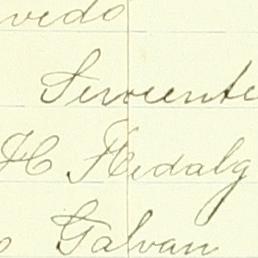 vedo
Sirviente
H Hidalg
o Galvan